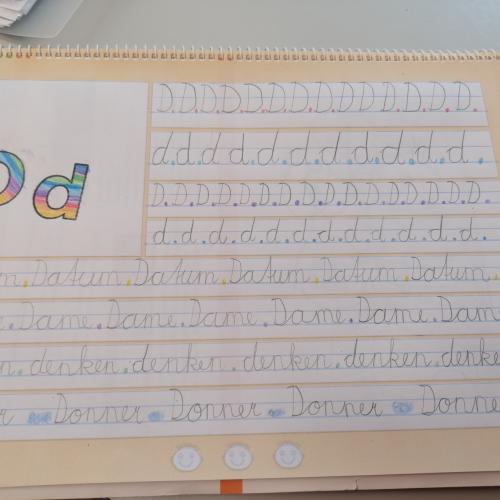 Dd
D.D.D.D.D.D.D.D.D.D.D.D.D.D.
d.d.d d.d.d.d.d.d.d.d.
D.D.D.D.D.D.D.D.D.D.D.D.D.D.D.D.
d.d.d.d.d.d.d.d.d.d.d.d.
m.Datum.Datum.Datum.Datum.Datum.
e.Dame.Dame.Dame.Dame.Dame.Dam
n.denken.denken.denken.denken.denke
r.Donner.Donner.Donner.Donne